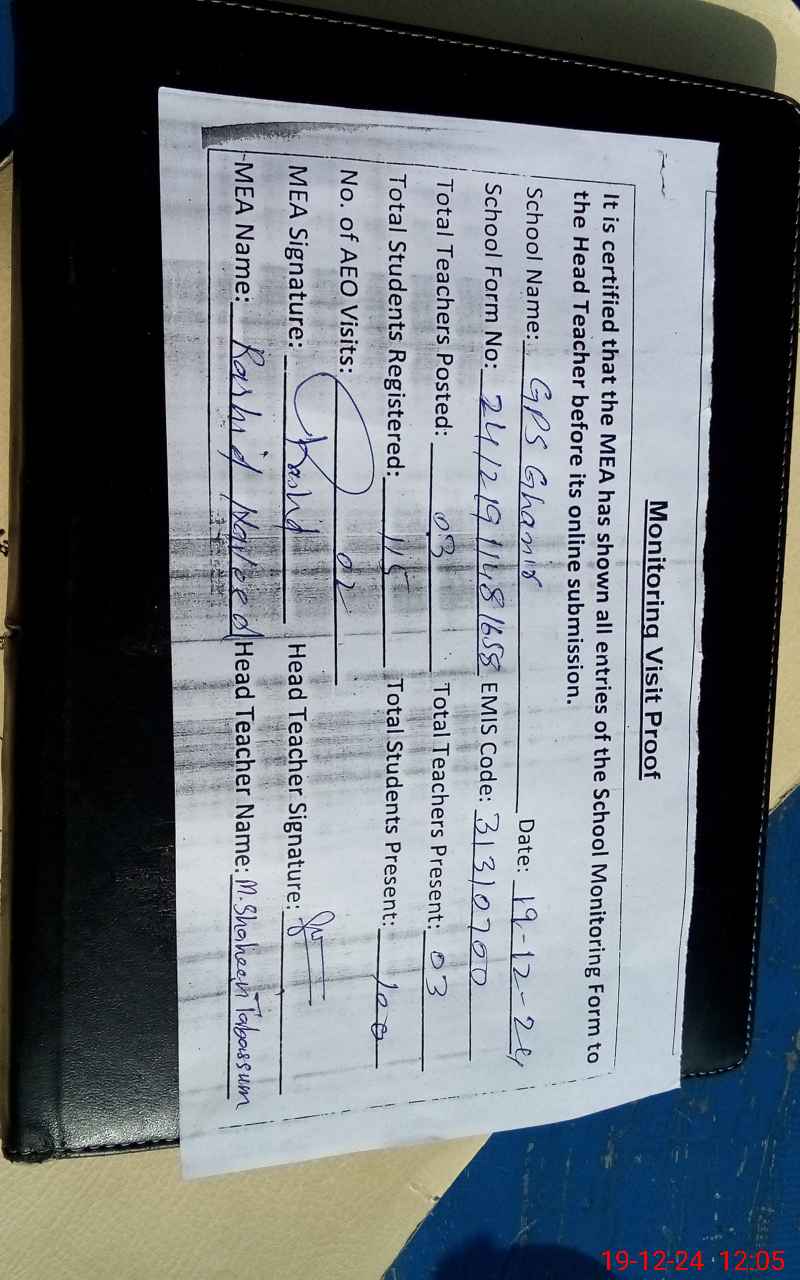 Monitoring Visit Proof
It is certified that the MEA has shown all entries of the School Monitoring Form to
the Head Teacher before its online submission.
School Name: GPS Ghanir Date: 19-12-24
School Form No: 24121911481658 EMIS Code: 31310700
Total Teachers Posted: 03 Total Teachers Present: 03
Total Students Registered: 115 Total Students Present: 100
No. of AEO Visits: 02
MEA Signature: Rashid Head Teacher Signature:
MEA Name: Rashid Naveed Head Teacher Name: M. Shaheen Tabassum
19-12-24 12:05